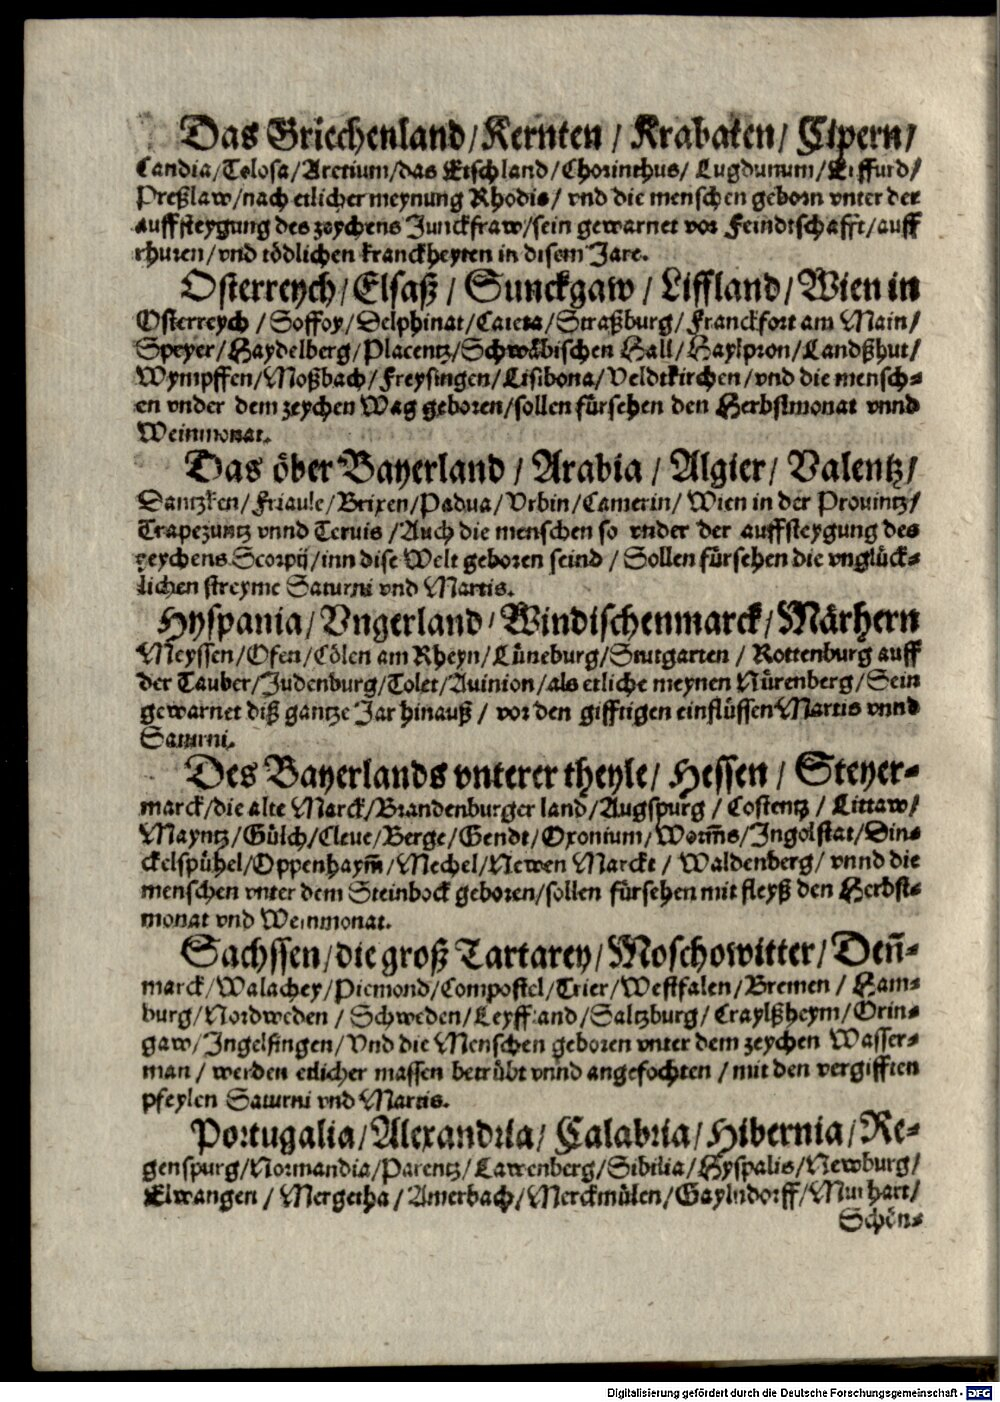 Das Griechenland/Kernten/Krabaten/Cipern/
Candia/Tolosa/Aretium/das Etschland/Chorinthus/Lugdunum/Eiffurd/
Preßlaw/nach etlicher meynung Rhodis/vnd die menschen geborn vnter der
auffsteygung des zeychens Junckfraw/sein gewarnet vor Feindtschafft/auff
rhuren/vnd tödlichen kranckheyten in disem Jare.
Osterreych/Elsaß/Sunckgaw/Liffland/Wien in
Osterreych/Soffoy/Delphinat/Caieta/Straßburg/Franckfort am Main/
Speyer/Haydelberg/Placentz/Schwäbischen Hall/Haylpron/Landßhut/
Wympffen/Moßbach/Freysingen/Lisibona/Veldtkirchen/vnd die mensch-
en vnder dem zeychen Wag geboren/sollen fürsehen den Herbstmonat vnnd
Weinmonat.
Das öber Bayerland/Arabia/Algier/Valentz/
Dantzken/Friaule/Brixen/Padua/Vrbin/Camerin/Wien in der Prouintz/
Trapezuntz vnnd Teruis/Auch die menschen so vnder der auffsteygung des
zeychens Scorpij/inn dise Welt geboren seind/Sollen fürsehen die vnglück-
lichen streyme Saturni vnd Martis.
Hyspania/Vngerland/Windischenmarck/Märhern
Meyssen/Ofen/Cölen am Rheyn/Lüneburg/Stutgarten/Rottenburg auff
der Tauber/Judenburg/Tolet/Auinion/als etliche meynen Nürenberg/Sein
gewarnet diß gantze Jar hinauß/vor den gifftigen einflüssen Martis vnnd
Saturni.
Des Bayerlands vnterer theyle/Hessen/Steyer-
marck/die alte Marck/Brandenburger land/Augspurg/Costentz/Littaw/
Mayntz/Gülch/Cleue/Berge/Gendt/Oxonium/Worm̃s/Ingolstat/Din-
ckelspühel/Oppenhaym̃/Mechel/Newen Marckt/Waldenberg/vnnd die
menschen vnter dem Steinbock geboren/sollen fürsehen mit fleyß den Herbst-
monat vnd Weinmonat.
Sachssen/die groß Tartarey/Moschowitter/Deñ-
marck/Walachey/Piemond/Compostel/Trier/Westfalen/Bremen/Ham-
burg/Nordweden/Schweden/Leyffland/Saltzburg/Craylßheym/Orin-
gaw/Ingelfingen/Vnd die Menschen geboren vnter dem zeychen Wasser-
man/werden etlicher massen betrübt vnnd angefochten/mit den vergifften
pfeylen Saturni vnd Martis.
Portugalia/Alexandria/Calabria/Hibernia/Re-
genspurg/Normandia/Parentz/Lawenberg/Sibilia/Hyspalis/Newburg/
Elwangen/Mergetha/Amerbach/Merckmülen/Gaylndorff/Murhart/
Schön-
Digitalisierung gefördert durch die Deutsche Forschungsgemeinschaft - DFG